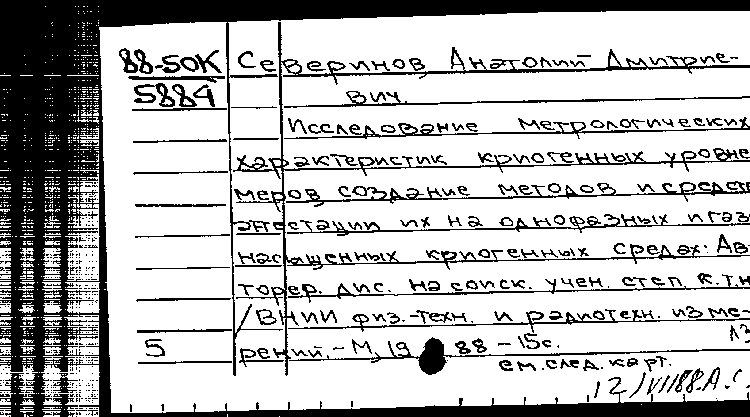 88-50К Северинов, Анатолий Дмитрие-
5884 вич.
Исследование метрологических
характеристик криогенных уровне
меров, создание методов и средст
аттестации их на однофазных и газо
насыщенных криогенных средах: Ав
торер. дис. на соиск. учен. степ. к.т.н
/ВНИИ физ.-техн. и радиотехн. изме-
5 рений. - М, 19 88 - 15с.
см. след. карт.